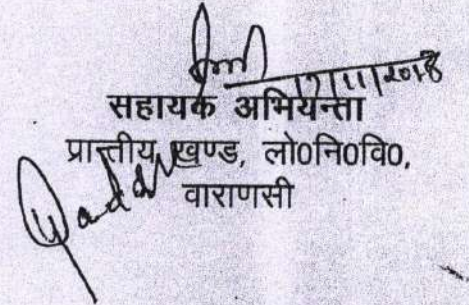 17/11/2018
सहायक अभियन्ता
प्रान्तीय खण्ड, लो०नि०वि०,
वाराणसी